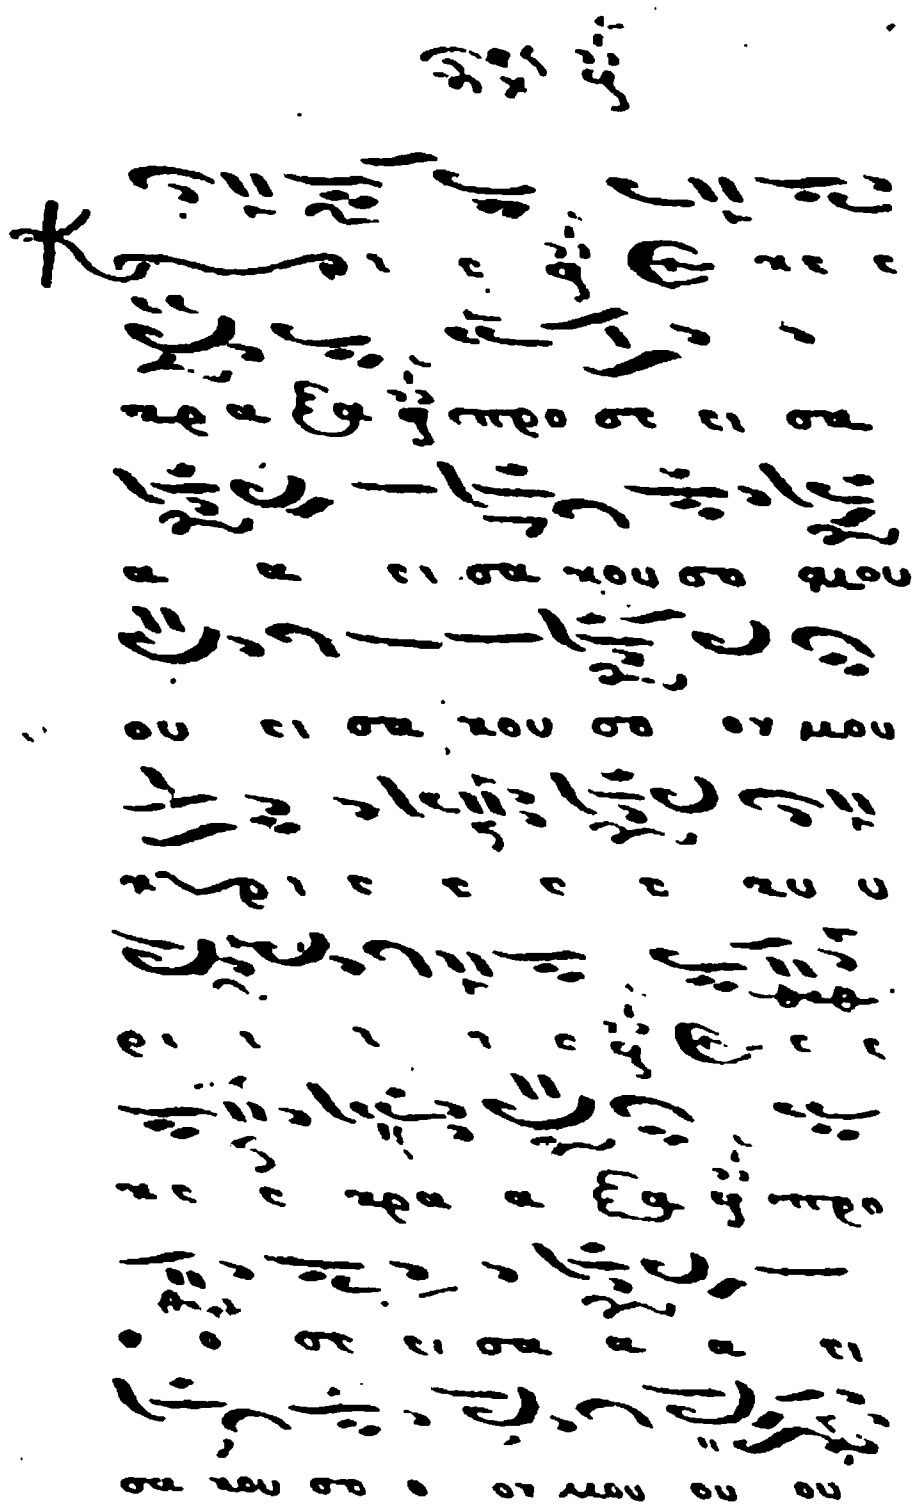 Κ ι ε Ε κε ε
κρα α ξα προ σε ει σα
α α ει σα κου σο μου
ου ει σα κου σο ον μου
Κ ρι ε ε ε ε κυ υ
ρι ι ι ι ε Ε ε ε
κε ε κρα α ξα προ
ο ο σε ει σα α α ει
σα κου σο ο ον μου ου ου